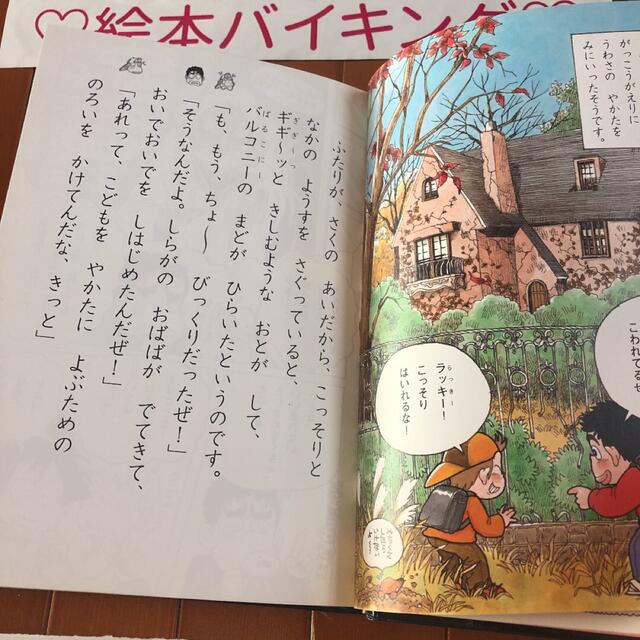 ♡絵本バイキング♡
がっこうがえりに
うわさの やかたを
みにいったそうです。
こわれてるぜ
ラッキー!
らっきー
こっそり
はいれるな!
ふたりが、さくの あいだから、こっそりと
なかの ようすを さぐっていると、
ギギ〜ッと きしむような おとが して、
ぎぎーっ
バルコニーの まどが ひらいたというのです。
ばるこにー
「も、もう、ちょ〜 びっくりだったぜ!」
「そうなんだよ。しらがの おばばが でてきて、
おいでおいでを しはじめたんだぜ!」
「あれって、こどもを やかたに よぶための
のろいを かけてんだな、きっと」